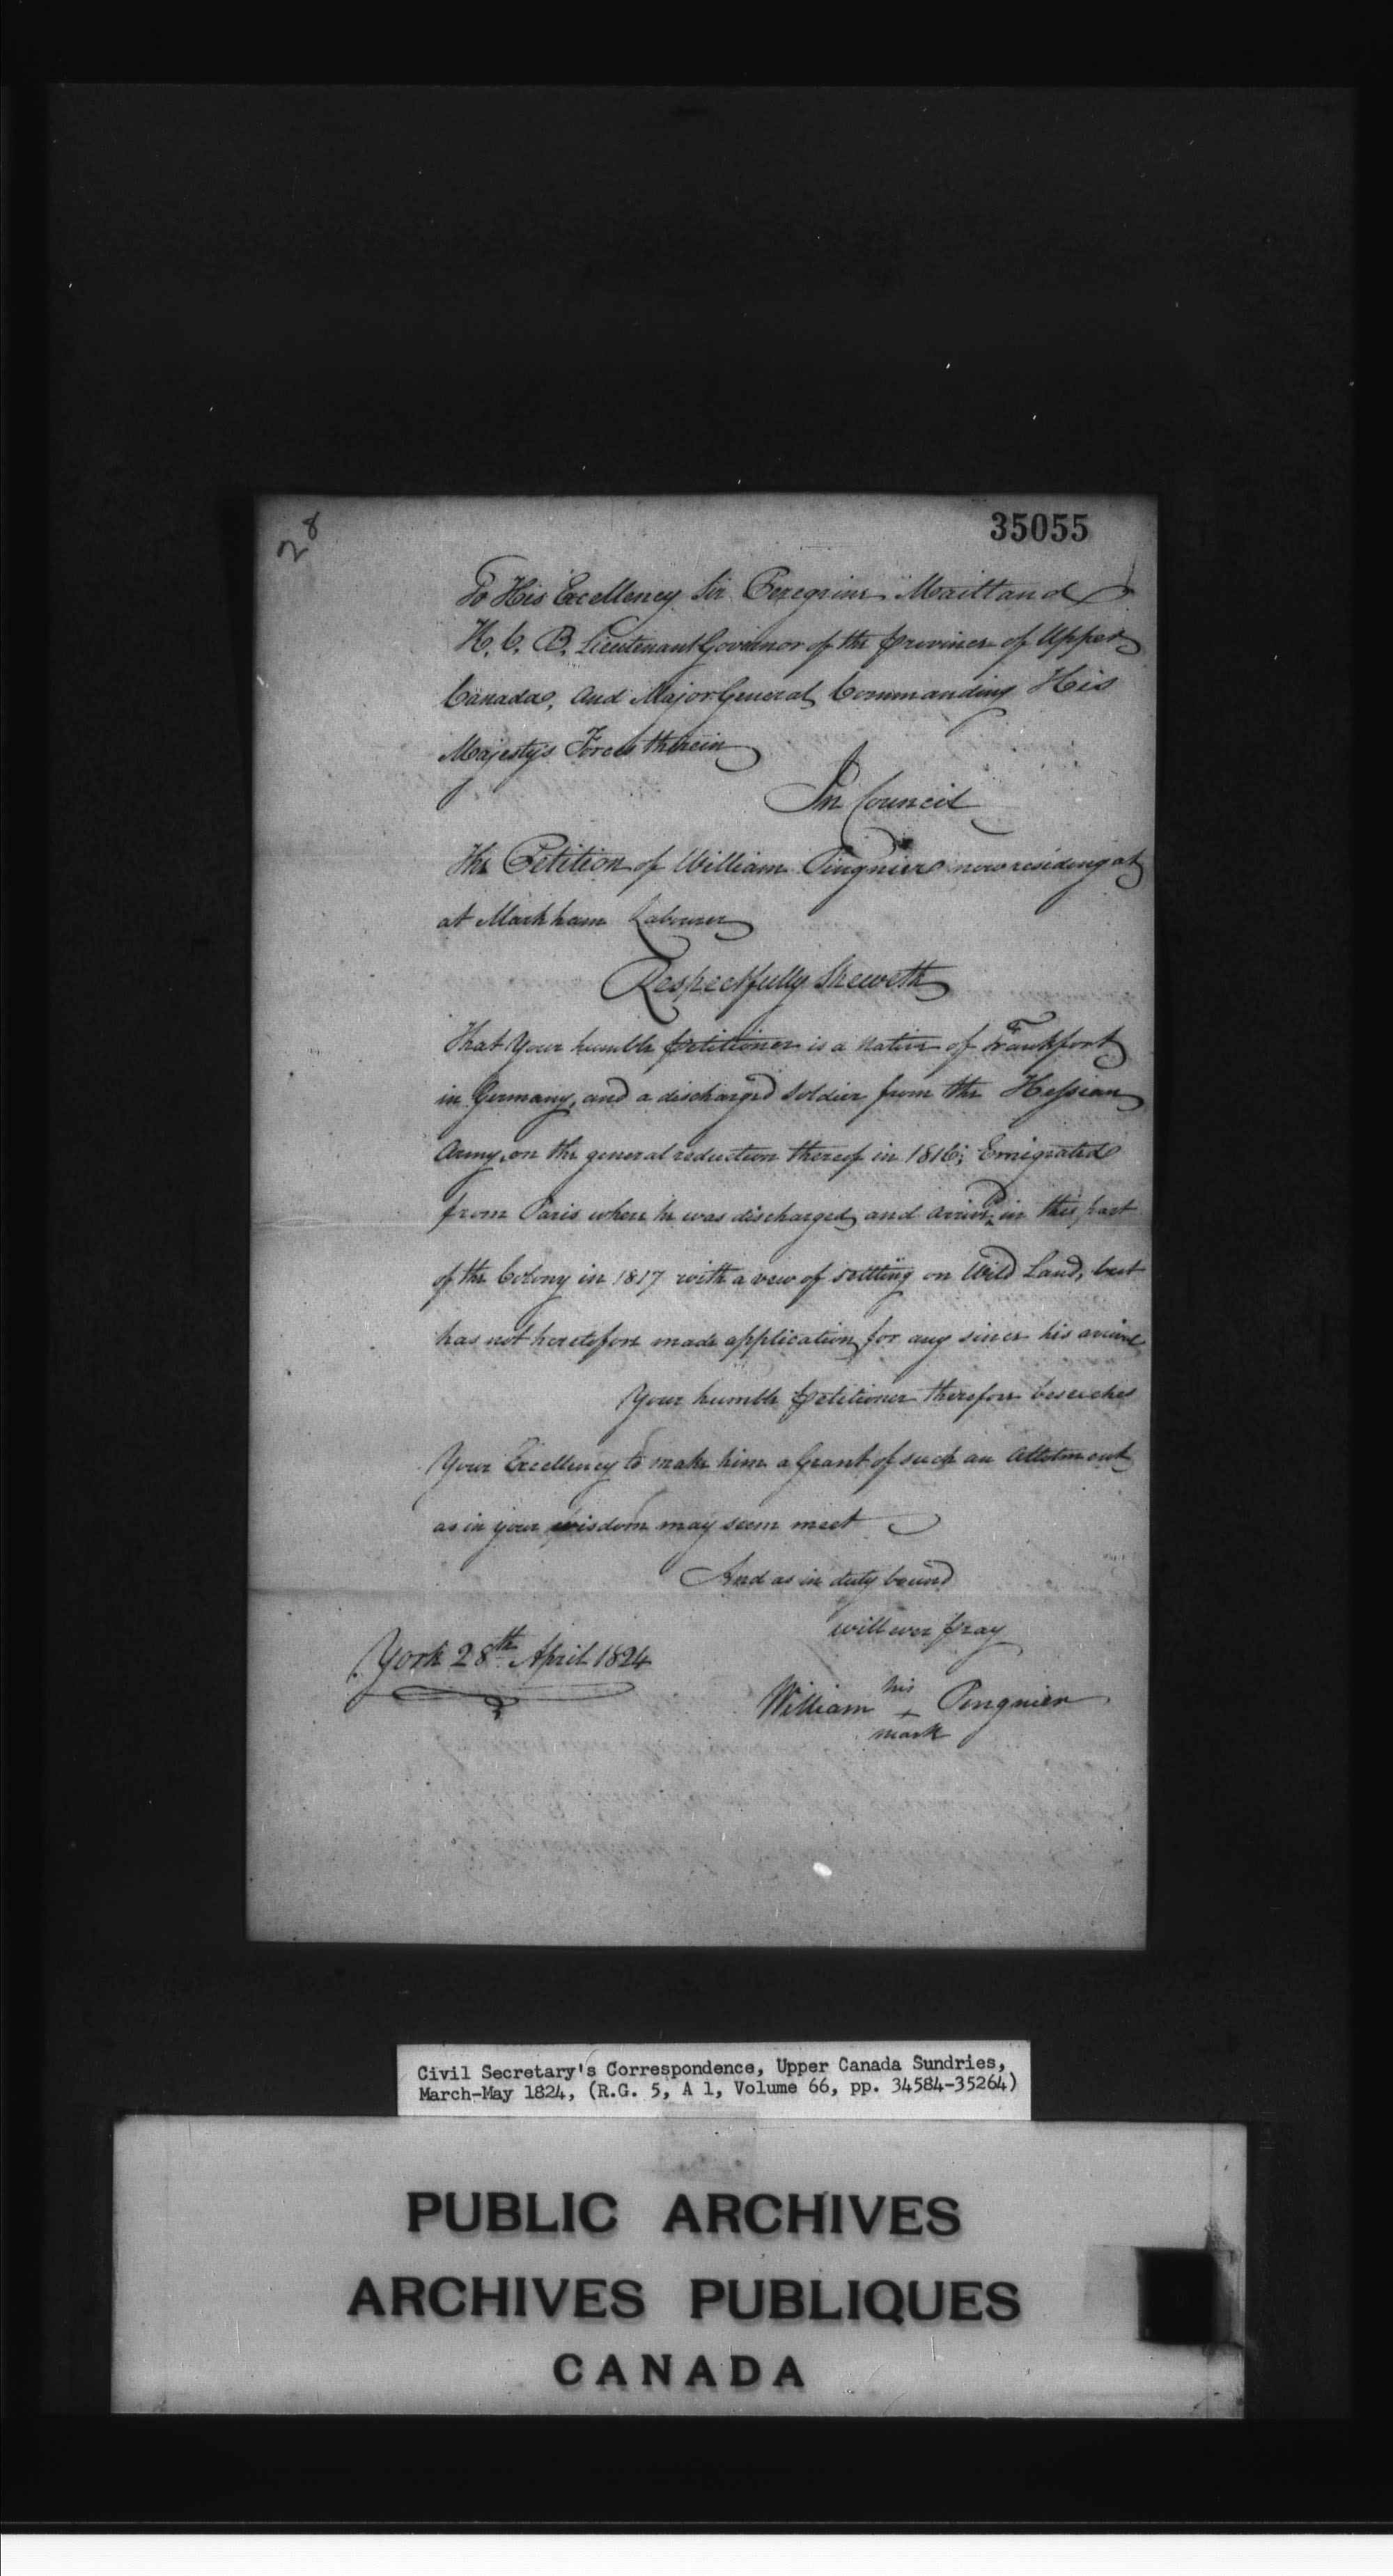 28
35055
To His Excellency Sir Peregrine Maitland
K. C. B. Lieutenant Governor of the province of Upper
Canada, and Major General Commanding His
Majestys Forces therein
In Council
The Petition of William Pingnier now residing at
at Markham Labourer
Respectfully Sheweth
That Your humble petitioner is a native of Frankfort
in Germany, and a discharged soldier from the Hessian
Army on the general reduction thereof in 1816; Emigrated
from Paris where he was discharged and arrived in this part
of the Colony in 1817 with a vew of settling on Wild Land, but
has not heretofore made application for any since his arrival
Your humble petitioner therefore beseeches
Your Excellency to make him a Grant of such an allotment
as in your wisdom may seem meet
And as in duty bound
will ever pray
York 28th April 1824
his
William + Pingnier
mark
Civil Secretary's Correspondence, Upper Canada Sundries,
March-May 1824, (R.G. 5, A 1, Volume 66, pp. 34584-35264)
PUBLIC ARCHIVES
ARCHIVES PUBLIQUES
CANADA